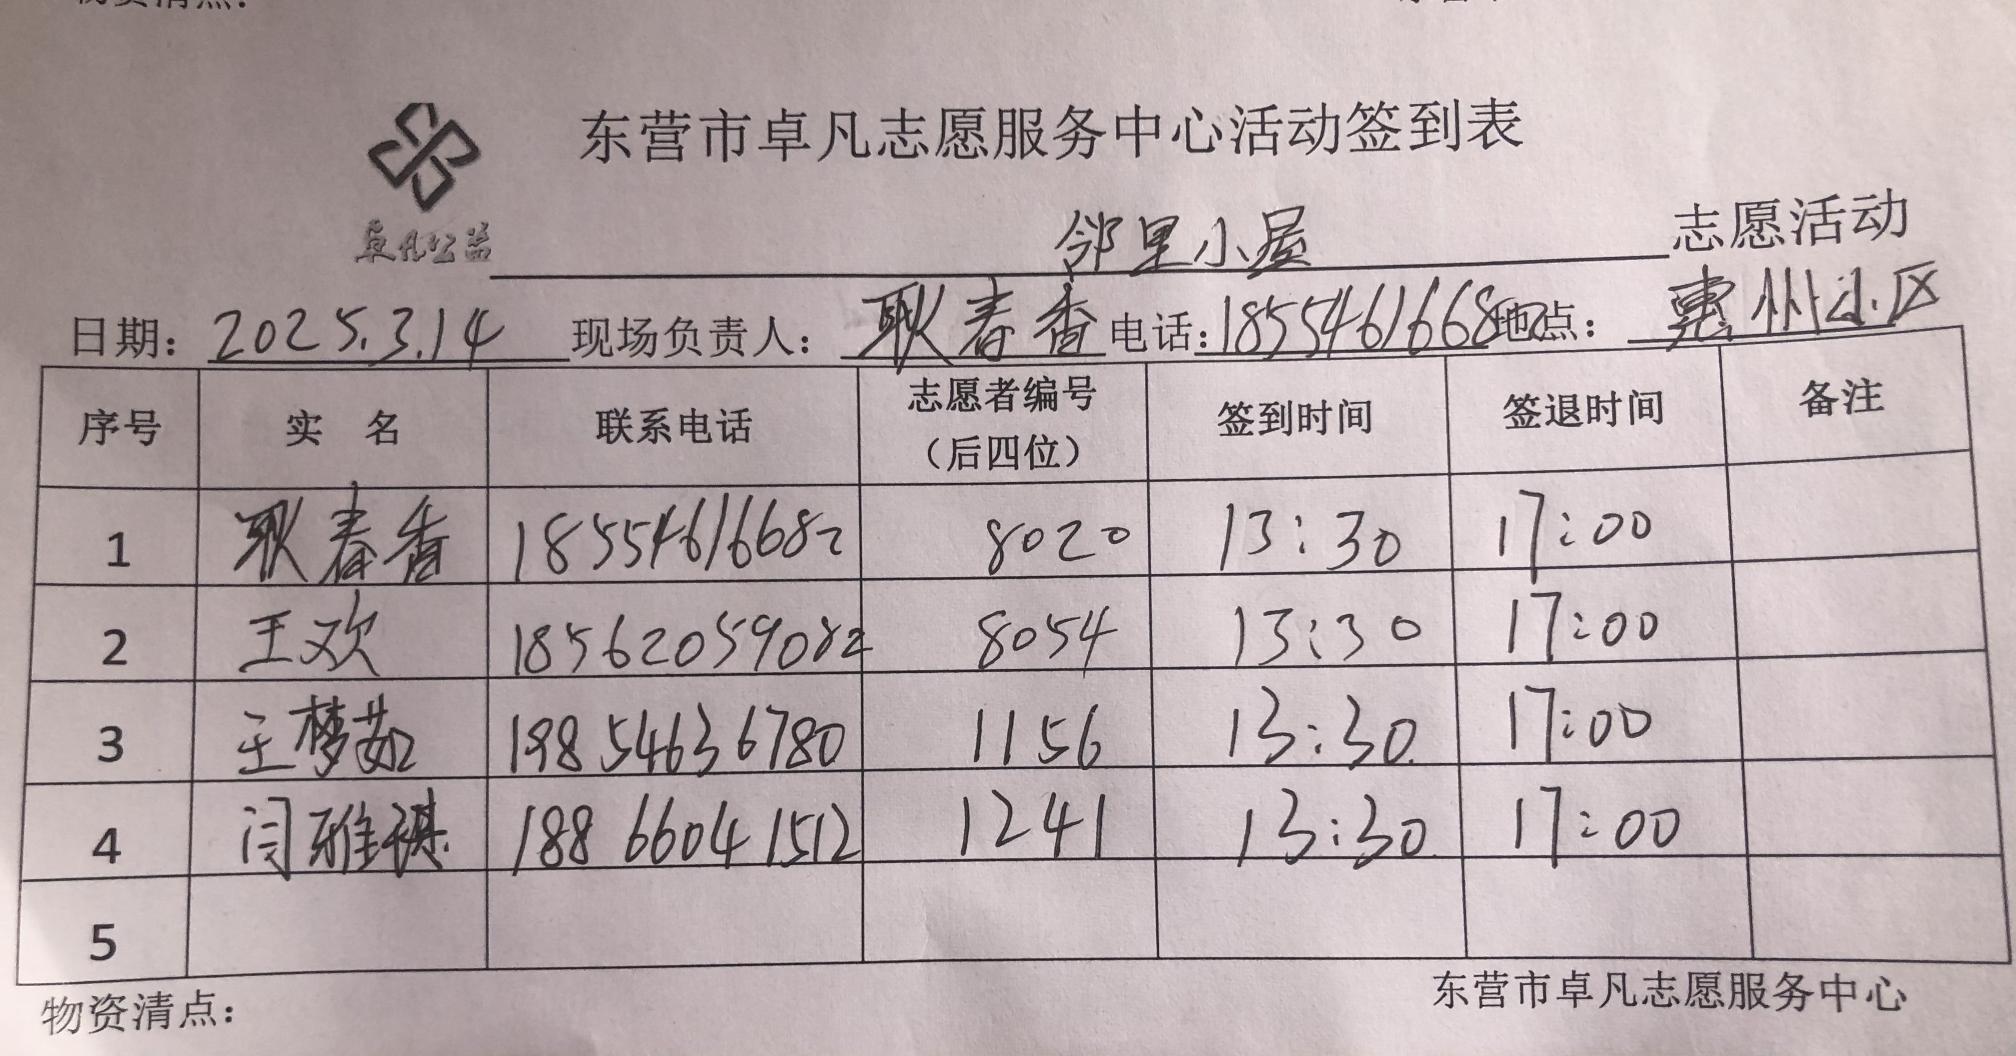 物资清点:
东营市卓凡志愿服务中心活动签到表
卓凡公益
邻里小屋 志愿活动
日期: 2025.3.14 现场负责人: 耿春香 电话: 18554616682 地点: 惠州小区
序号 实 名 联系电话 志愿者编号（后四位） 签到时间 签退时间 备注
1 耿春香 18554616682 8020 13:30 17:00
2 王欢 18562059082 8054 13:30 17:00
3 王梦茹 19854636780 1156 13:30 17:00
4 闫雅祺 18866041512 1241 13:30 17:00
5
物资清点: 东营市卓凡志愿服务中心